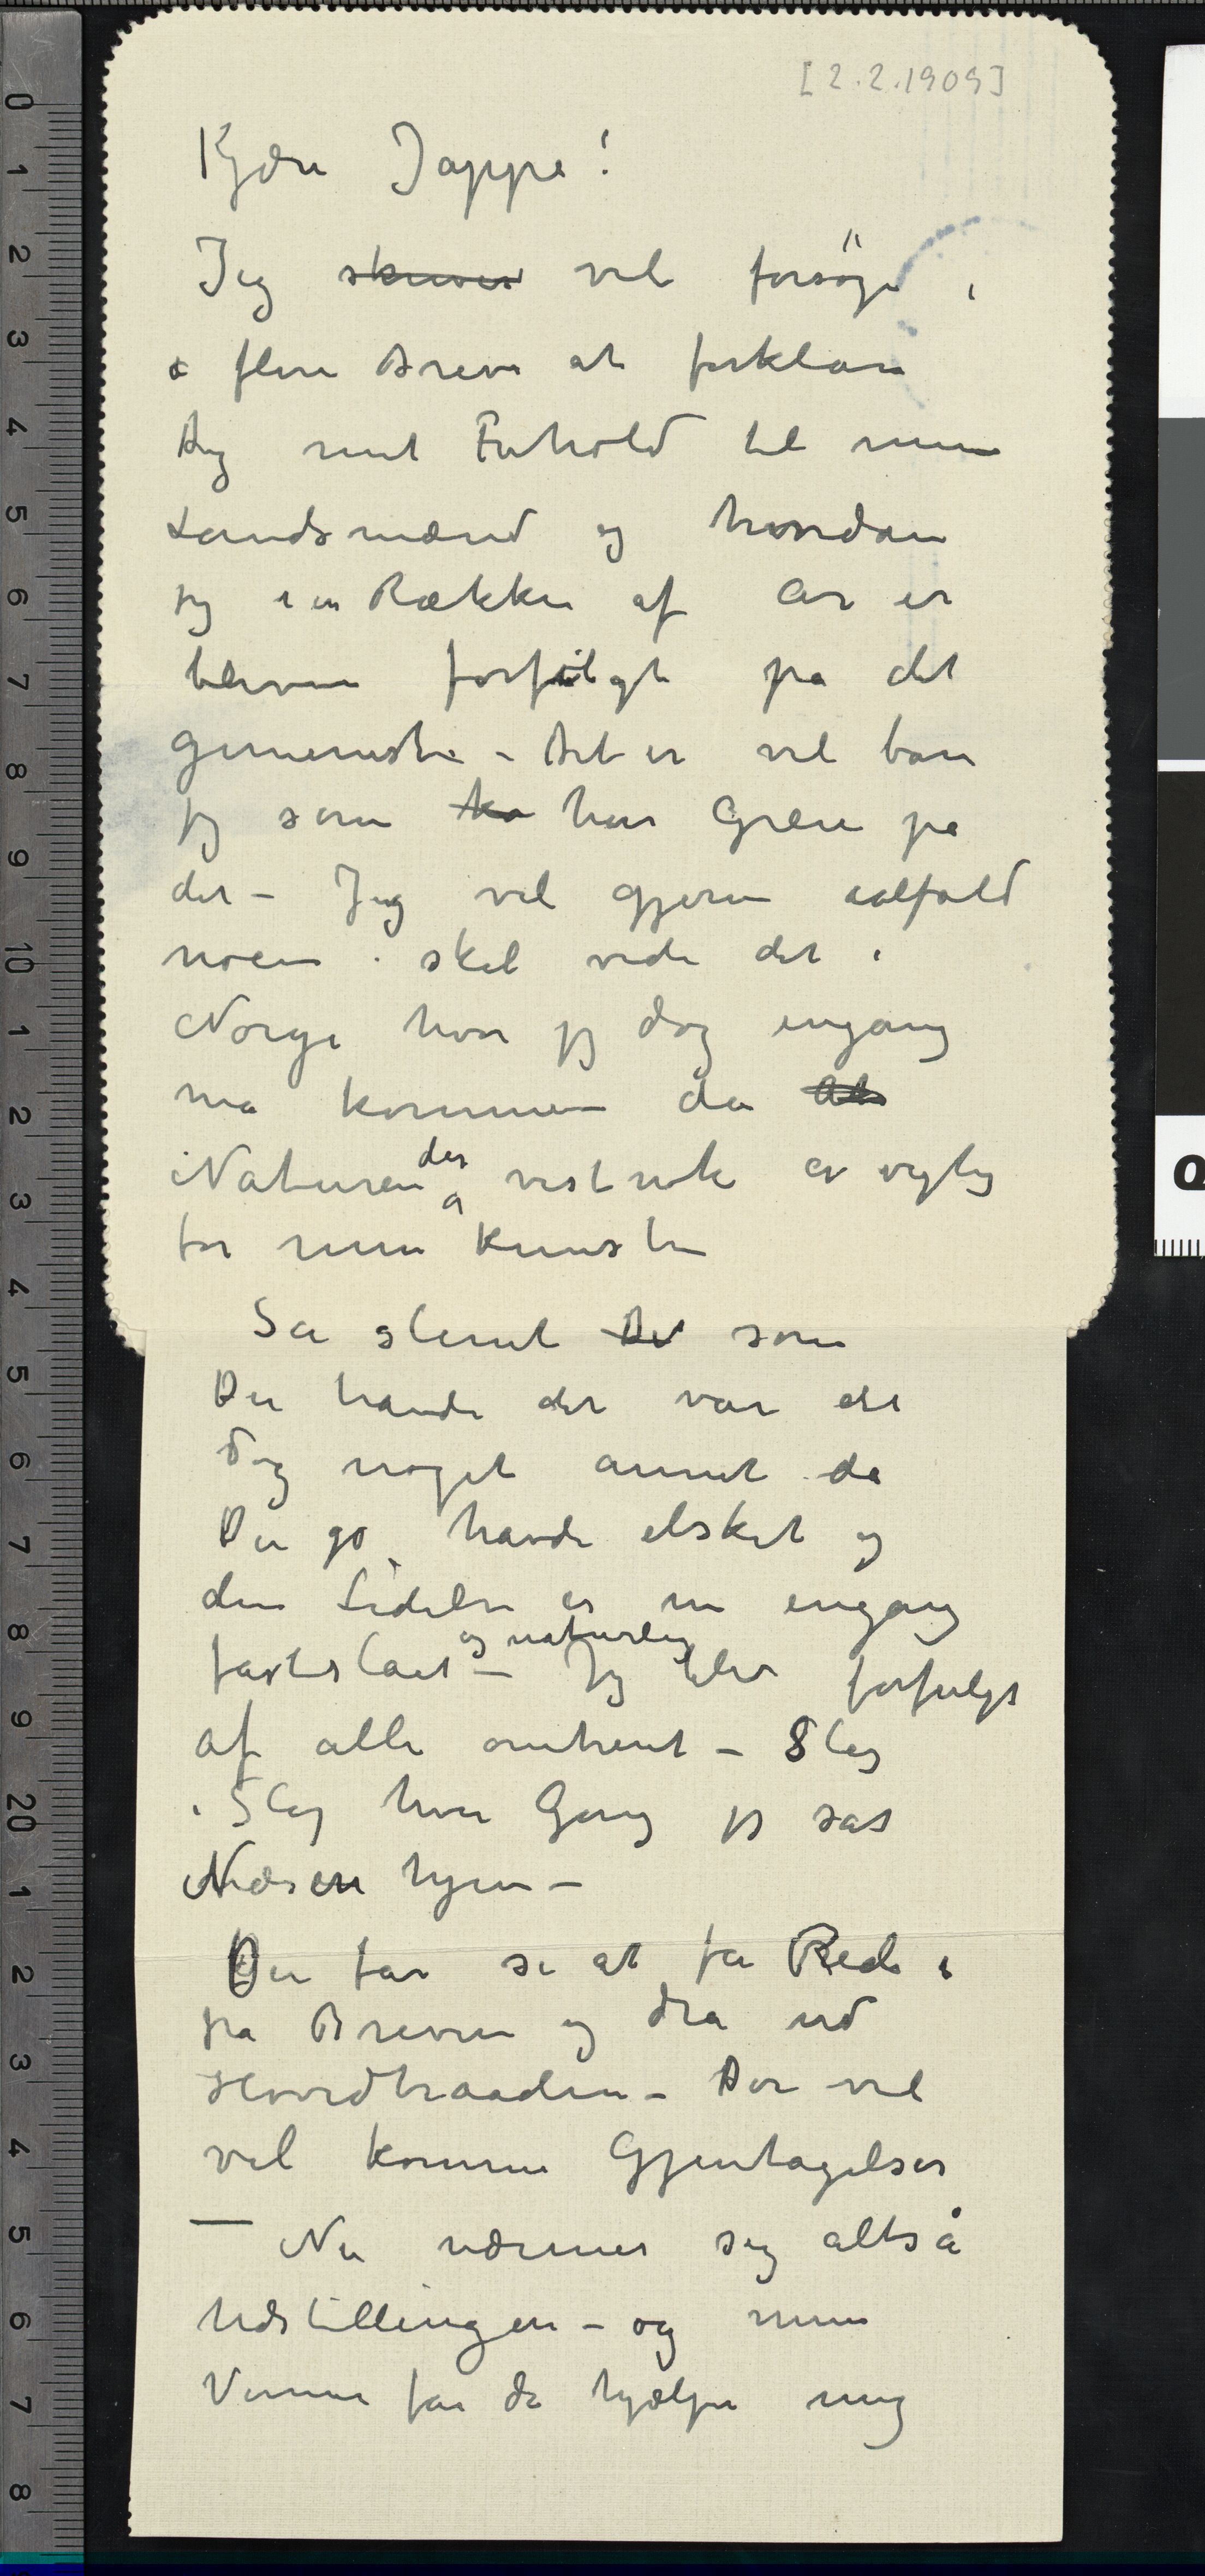 [2.2.1909]
Kjære Jappe!
Jeg skriver vil forsøge i
a flere Breve at forklare
Dig mit Forhold til mine
Landsmænd og hvordan
jeg i en Rækkke af År er
bleven forfølgt på det
gemeneste – Det er vel bare
jeg som ka har Græie på
det – Jeg vil gjerne ialfald
noen skal vide det i
Norge hvor jeg dog engang
må komme da
Naturen der vistnok er vigtig
for min Kunst
Så slemt Det som
Du havde det var det
dog noget annet da
Du jo havde elsket og
den Lidelse er nu engang
fastslået og naturlig – Jeg blev forfulgt
af alle omtrent – Slag
i Slag hver Gang jeg sat
Næsen hjem –
Du får se at få Rede i
på Breven og dra ud
Hovedtraaden – Der vil
vel komme Gjentagelser
– Nu nærmer sig altså
Udstillingen – og mine
Venner får da hjælpe mig